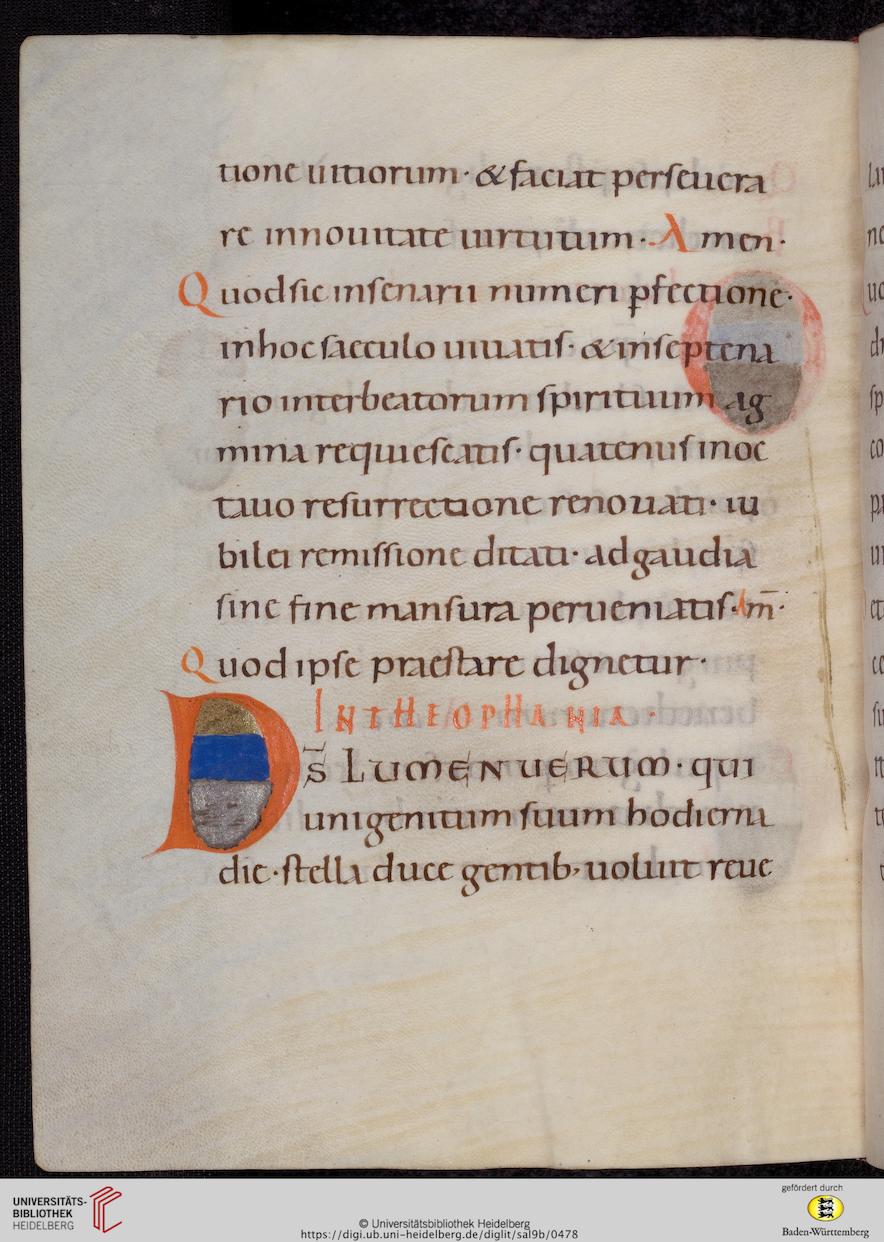 tione uitiorum· & faciat perseuera
re innouitate uirtutum· Amen·
Quod sic insenarii numeri p̲fectione·
inhoc saeculo uiuatis· & inseptena
rio inter beatorum spirituum ag
mina requiescatis· quatenus inoc
tauo resurrectione renouati· iu
bilei remissione ditati· ad gaudia
sine fine mansura perueniatis· Am̅·
Quod ipse praestare dignetur·
IN THEOPHANIA·
D̅S LUMEN UERUM· qui
unigenitum suum hodierna
die· stella duce gentib; uoluit reue
UNIVERSITÄTS-
BIBLIOTHEK
HEIDELBERG
© Universitätsbibliothek Heidelberg
https://digi.ub.uni-heidelberg.de/diglit/sal9b/0478
gefördert durch
Baden-Württemberg